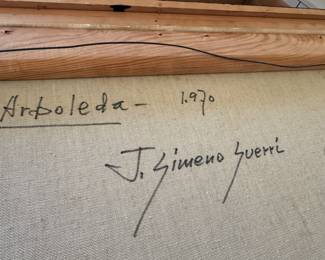 Arboleda - 1.970
J. Gimeno Guerri